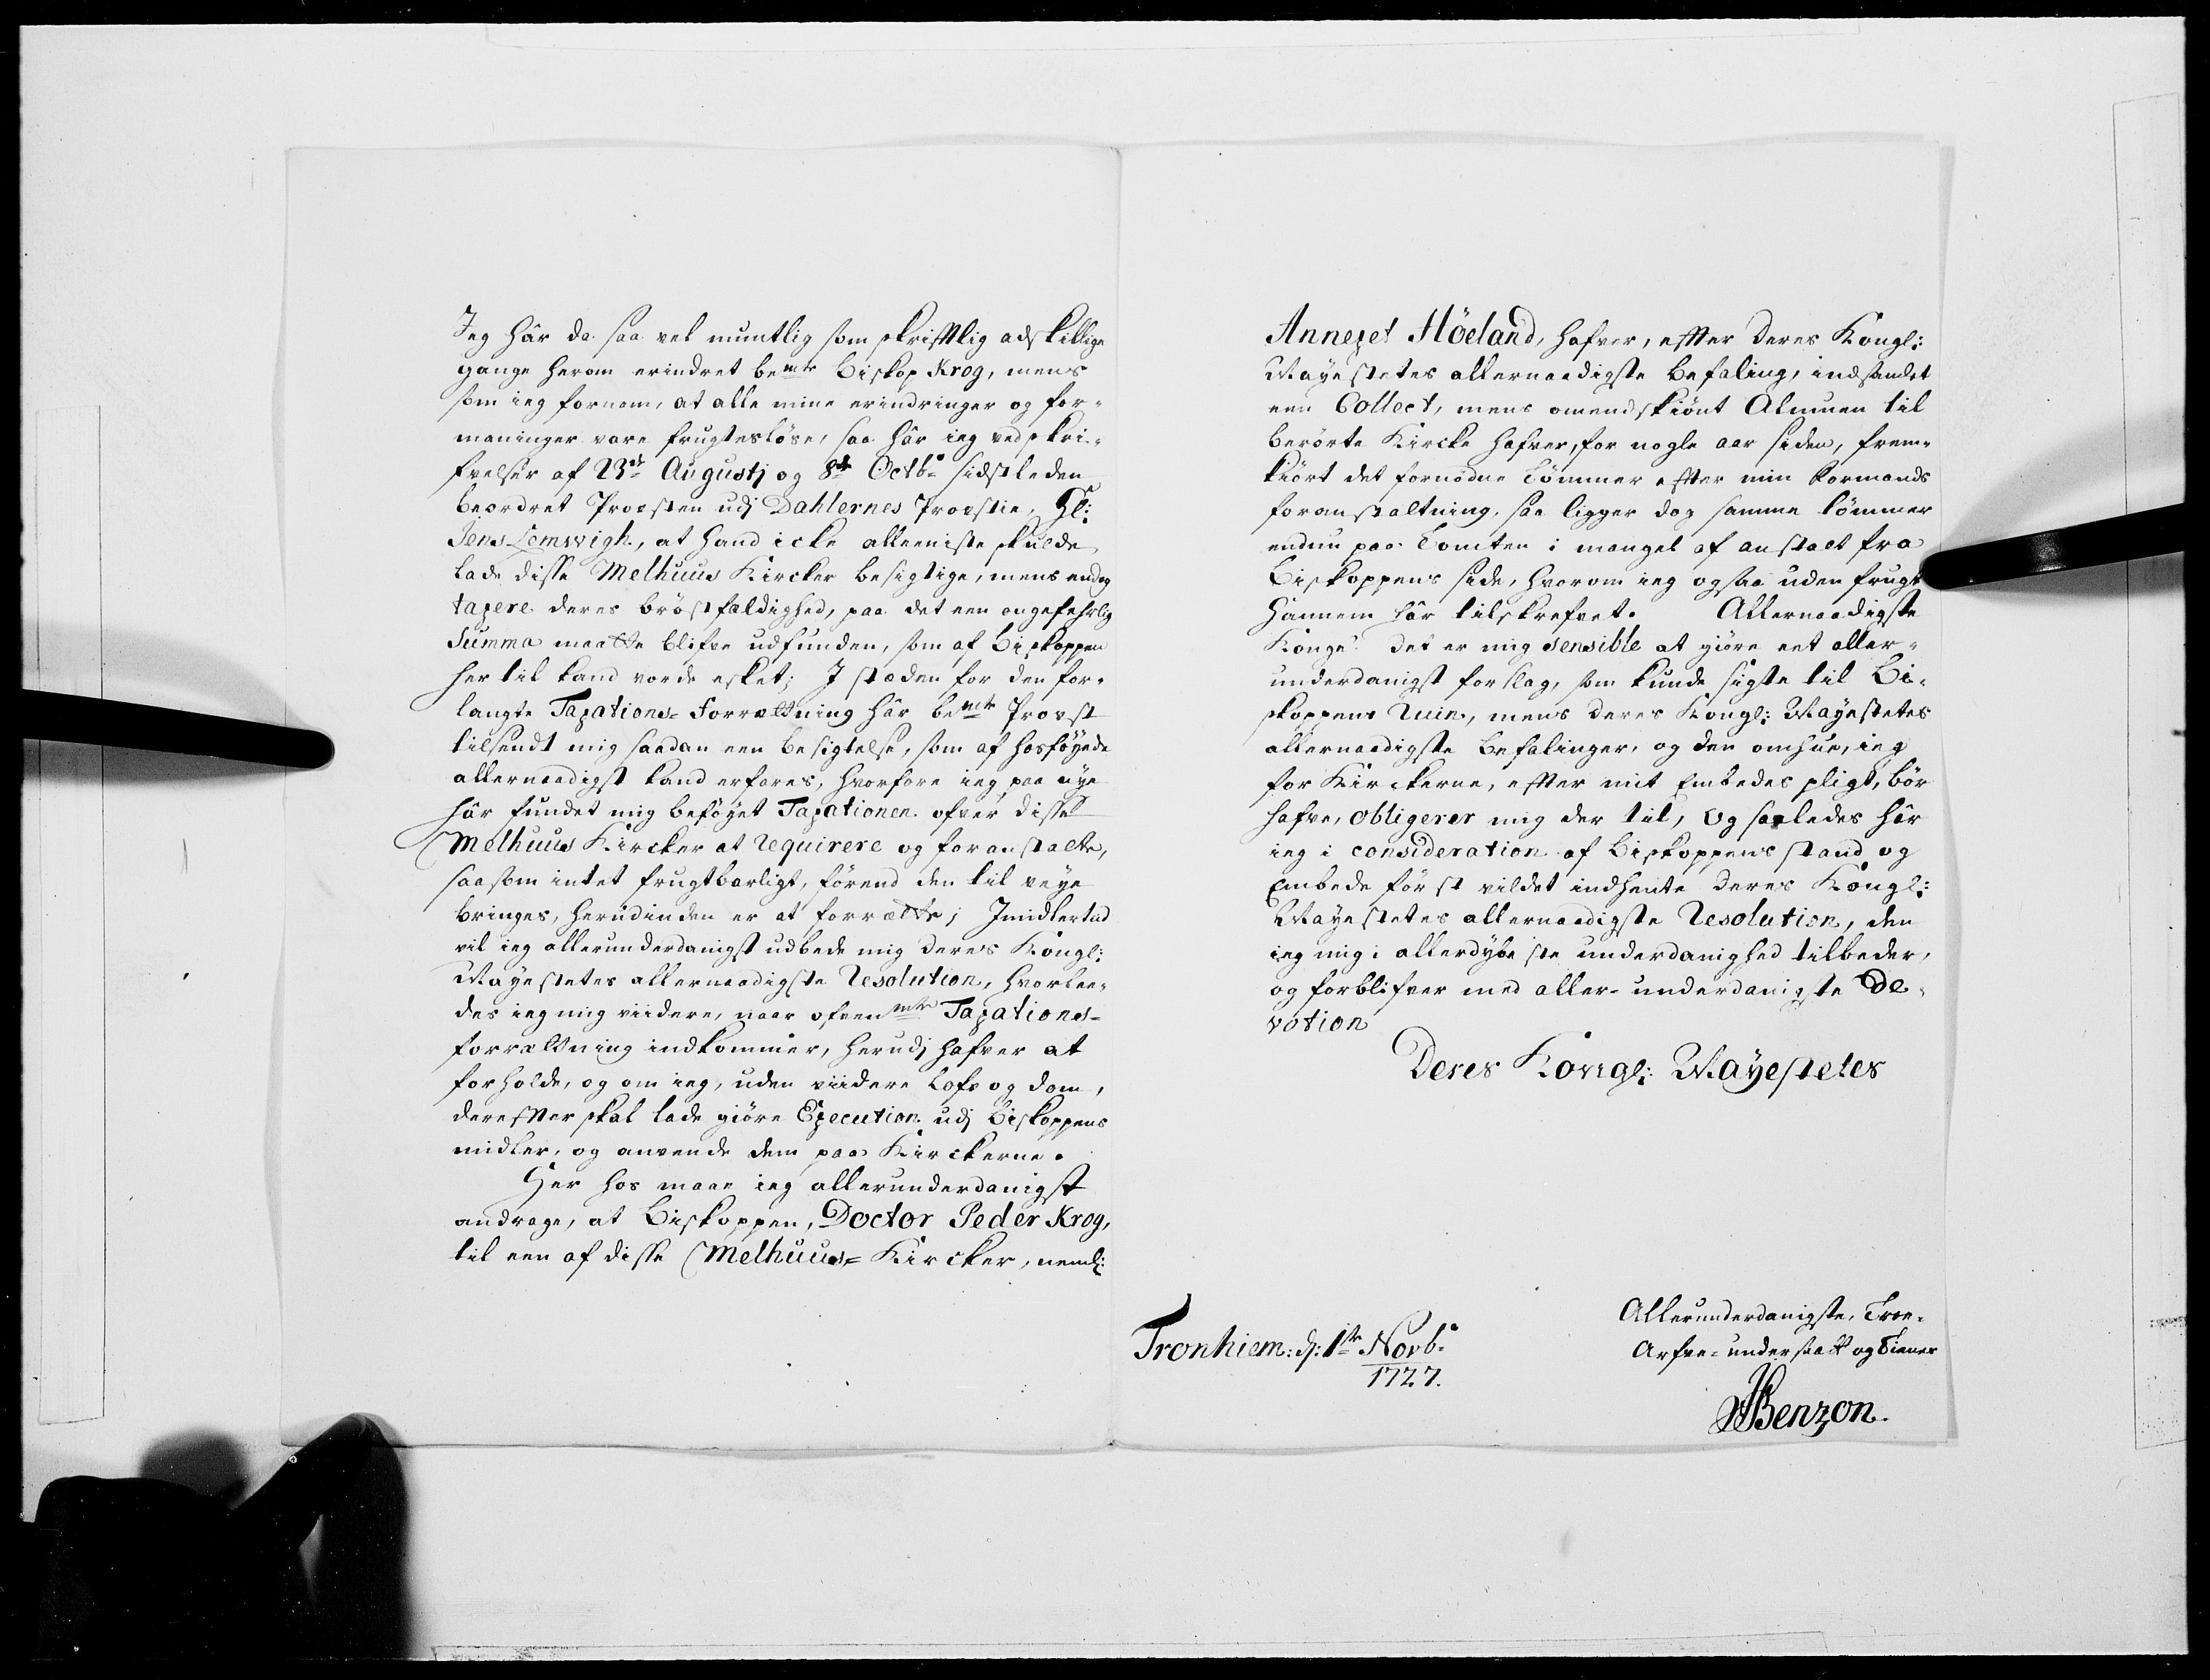 Jeg hâr da saa vel muntlig som skrifftlig adskillige
gange herom erindret bem.te Biskop Krog, mens
som ieg fornam, at alle mine erindringer og for-
maninger vare frugtesløse, saa hâr ieg ved skri-
fvelser af 23de Augustj og 8de Octb: sidstleden
beordret Provsten udj Dahlernes Provstie, Hl:
Jens Lemwigh, at hand icke alleeniste skulde
lade disse Melhuus Kircker besigtige, mens endog
taxere deres brøstfældighed, paa det een ongefehrlig
Summa maatte blifve udfunden, som af Biskoppen
her til kand vorde esket; J stæden for den for-
langte Taxations-Forrætning hâr bemte Provst
tilsendt mig saadan een besigtelse, som af hosføyede
allernaadigst kand erfares, hvorfore ieg paa nye
hâr fundet mig beføyet Taxationen ofver disse
Melhuus Kircker at requirere og foranstalte,
saasom intet frugtbarligt, førend den til veye
bringes, herudinden er at forrætte; Jmidlertid
vil ieg allerunderdanigst udbede mig Deres Kongl:
Mayestetes allernaadigste Resolution, hvorlee-
des ieg mig viidere, naar ofvenmte Taxations-
forrætning indkommer, herudj hafver at
forholde, og om ieg, uden viidere Lofv og dom,
derefter skal lade giøre Execution udj Biskoppens
midler, og anvende dem paa Kirckerne.
Her hos maae ieg allerunderdanigst
andrage, at Biskoppen, Doctor Peder Krog,
til een af disse Melhuus-Kircker, neml:
Annexet Höeland, hafver, effter Deres Kongl:
Mayestetes allernaadigste Befaling, indsamlet
een Collect, mens omendskiönt Almuen til
berørte Kircke hafver, for nogle aar siden, frem-
kiørt det fornødne Tømmer effter min Formands
foranstaltning, saa ligger dog samme tømmer
endnu paa Tomten i mangel af anstalt fra
Biskoppens side, hvorom ieg ogsaa uden frugt
hannem hâr tilskrefvet. Allernaadigste
Konge! det er mig sensible at giøre eet aller-
underdanigst forslag, som kunde sigte til Bi-
skoppens Ruin, mens Deres Kongl: Mayestetes
allernaadigste Befalinger, og den omhue, ieg
for Kirckerne, effter mit Embedes pligt, bør
hafve, obligerer mig der til, Og saaledes hâr
ieg i consideration af Biskoppens stand og
Embede først vildet indhente Deres Kongl:
Mayestetes allernaadigste Resolution, den
ieg mig i allerdybeste underdanighed tilbeder,
og forblifver med aller-underdanigste De-
votion
Deres Kongl: Mayestetes
Tronhiem: d: 1te Novb:
1727.
Allerunderdanigste, Troe-
Arfve-undersaatt og Tiener
Benzon.